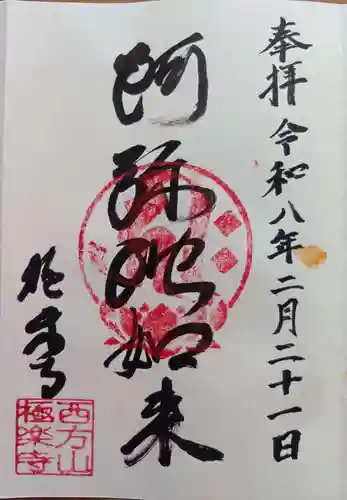 奉拝 令和八年二月二十一日
阿弥陀如来
極楽寺
西方山
極楽寺